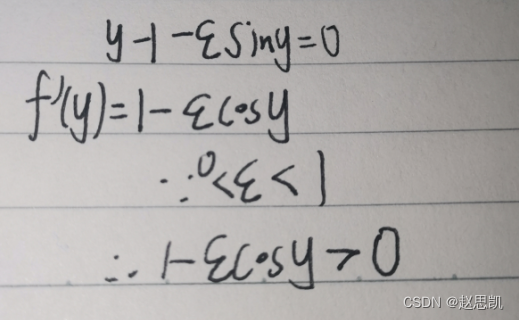 y-1-εsiny=0
f'(y)=1-εcosy
∵0<ε<1
∴1-εcosy>0
CSDN @赵思凯